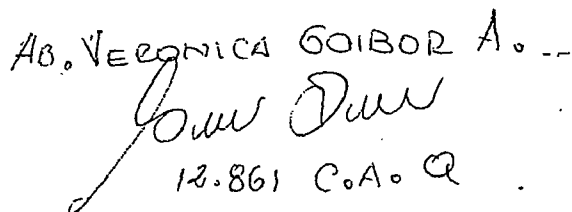 AB. VERONICA GOIBOR A. --
12.861 C.A. Q